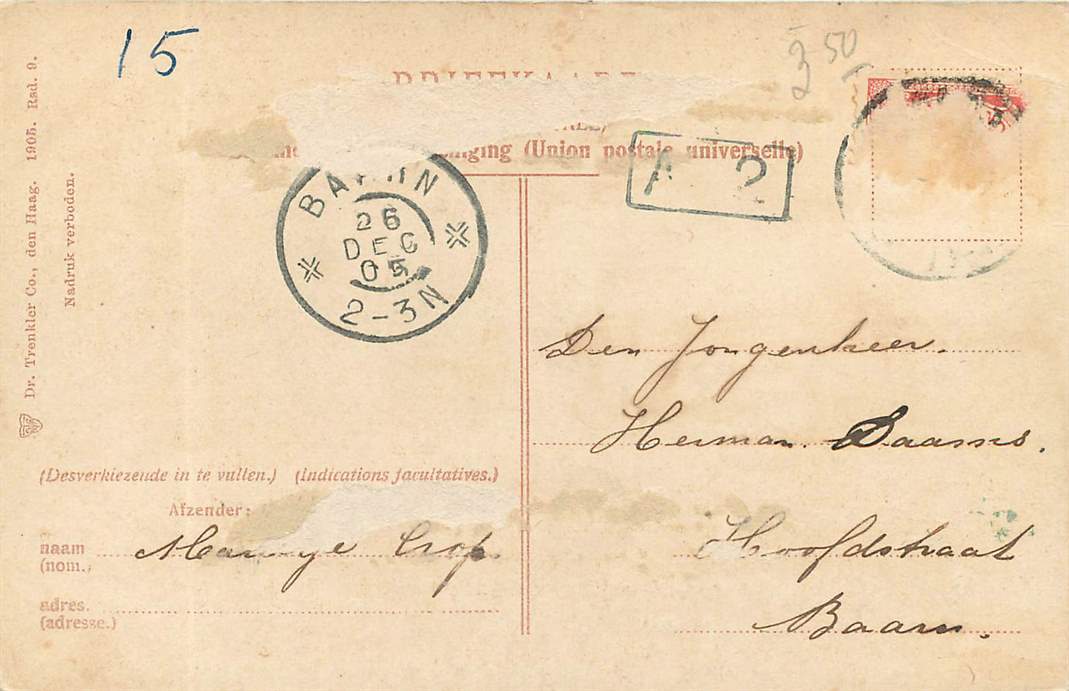 15
3 50
BRIEFKAART
ging (Union postale universelle)
A 2
BAARN
26
DEC
05
2-3N
Dr. Trenkler Co., den Haag. 1905. Rad. 9.
Nadruk verboden.
Den Jongenheer.
Herman Daams.
Hoofdstraat
Baarn.
(Desverkiezende in te vullen.) (Indications facultatives.)
Afzender:
naam Marietje Crop
(nom.)
adres.
(adresse.)